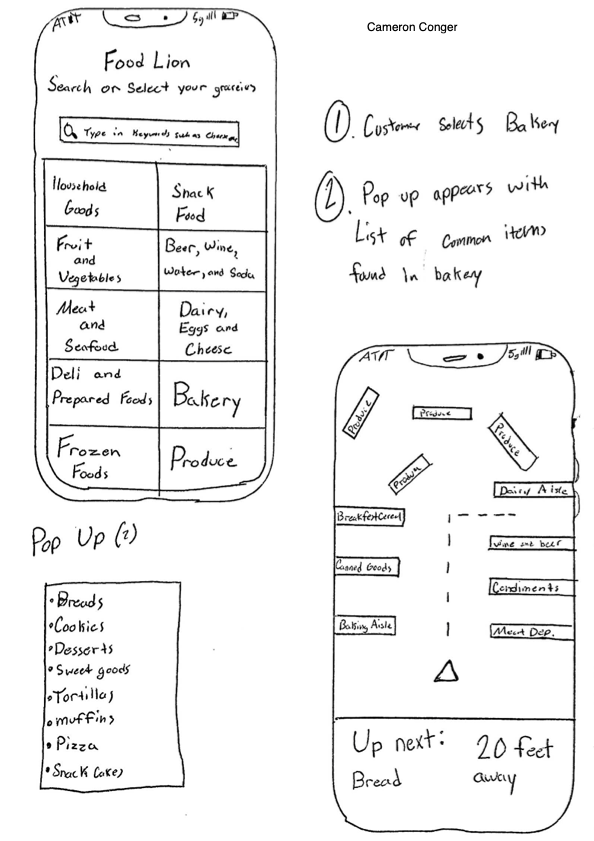 Cameron Conger
AT&T
5g
Food Lion
Search or Select your groceries
Type in Keywords such as Cheese
Household
Goods
Snack
Food
Fruit
and
Vegetables
Beer, Wine,
Water, and Soda
Meat
and
Seafood
Dairy,
Eggs and
Cheese
Deli and
Prepared Foods
Bakery
Frozen
Foods
Produce
1. Customer Selects Bakery
2. Pop up appears with
List of common items
found In bakery
Pop Up (2)
• Breads
• Cookies
• Desserts
• Sweet goods
• Tortillas
• muffins
• Pizza
• Snack Cakes
AT&T
5g
Produce
Produce
Produce
Produce
Dairy Aisle
BreakfastCereal
wine and beer
Canned Goods
Condiments
Baking Aisle
Meat Dep.
Up next:
Bread
20 feet
away